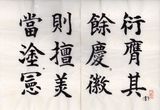 衍膺其
餘慶徽
則擅美
當塗憲